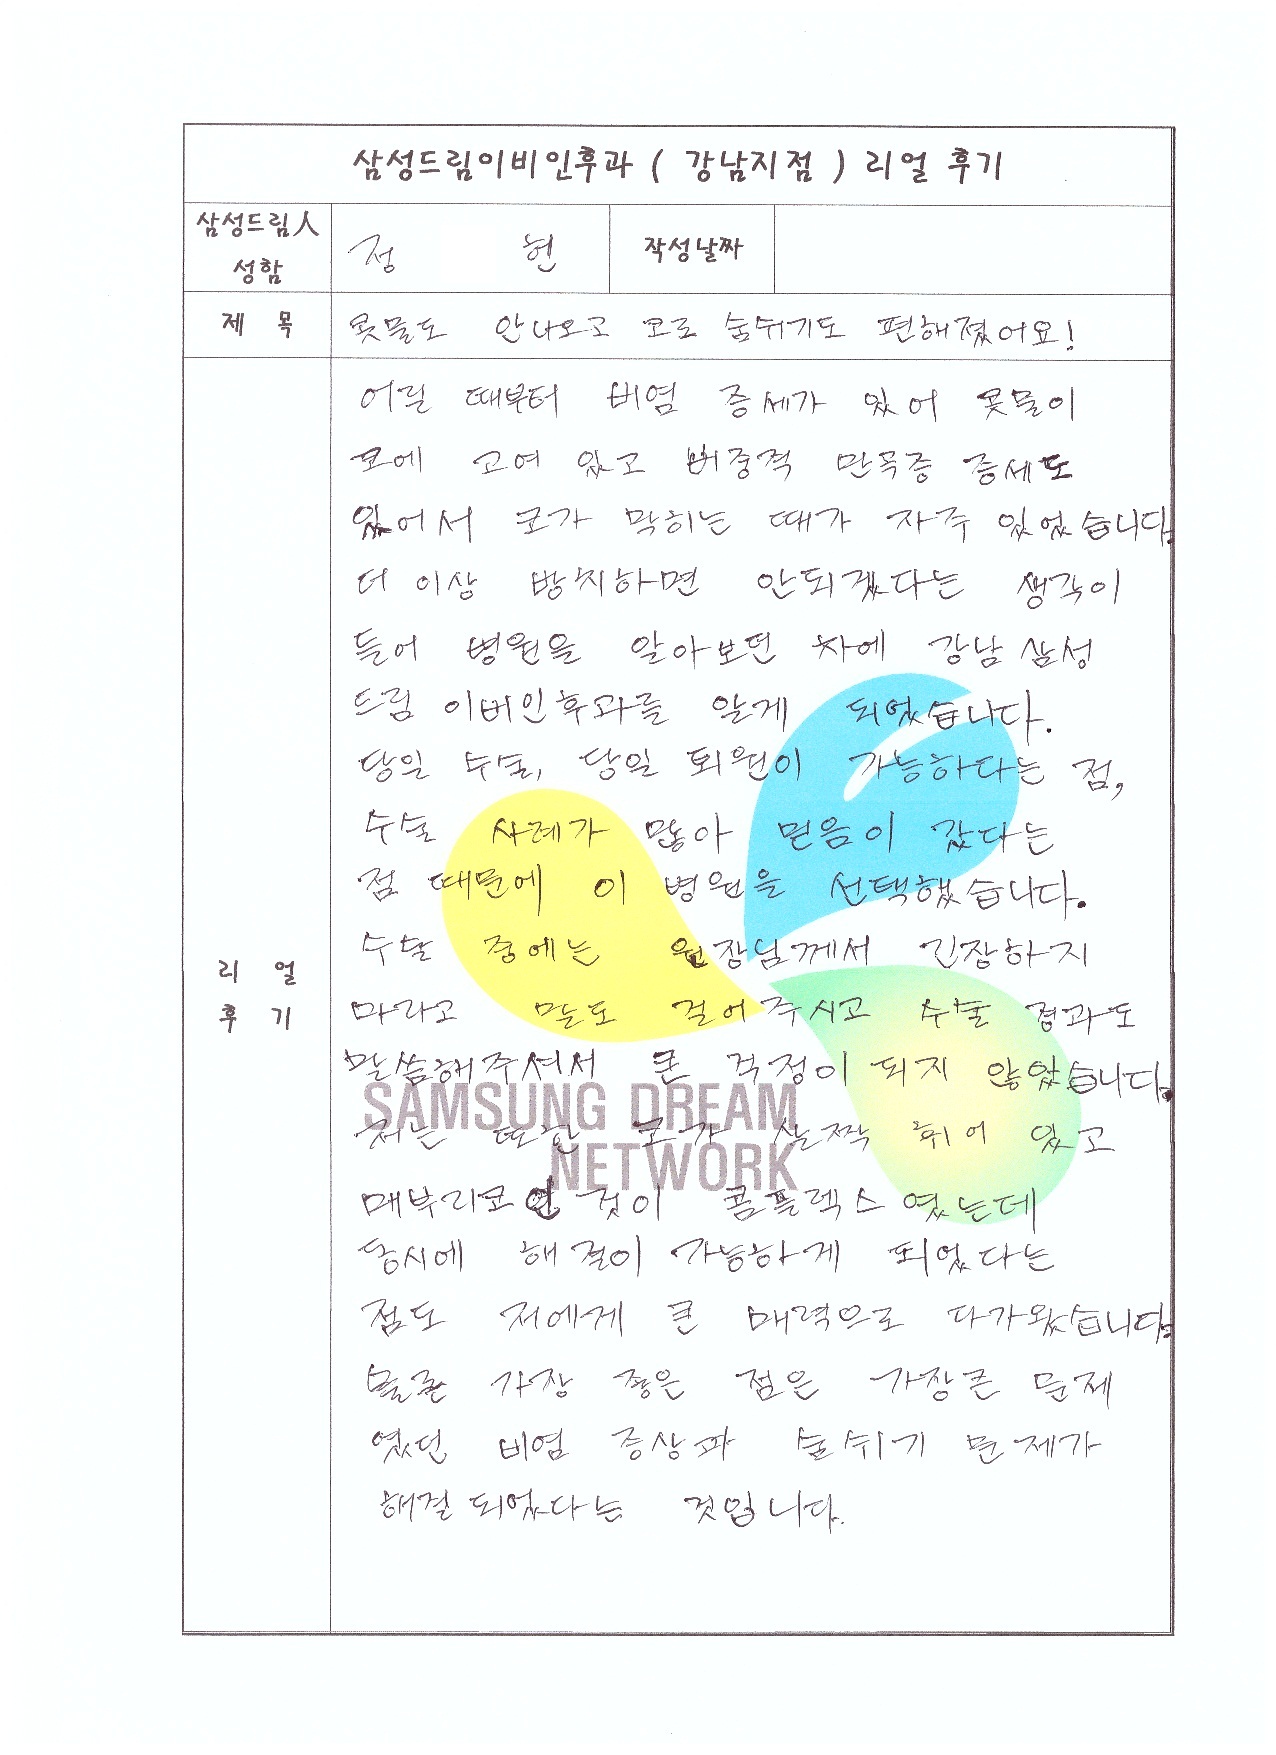 삼성드림이비인후과 ( 강남지점 ) 리얼 후기
삼성드림人
성함
정 현
작성날짜
제 목
콧물도 안나오고 코로 숨쉬기도 편해졌어요!
리 얼
후 기
어릴 때부터 비염 증세가 있어 콧물이
코에 고여 있고 비중격 만곡증 증세도
있어서 코가 막히는 때가 자주 있었습니다.
더 이상 방치하면 안되겠다는 생각이
들어 병원을 알아보던 차에 강남 삼성
드림 이비인후과를 알게 되었습니다.
당일 수술, 당일 퇴원이 가능하다는 점,
수술 사례가 많아 믿음이 갔다는
점 때문에 이 병원을 선택했습니다.
수술 중에는 원장님께서 긴장하지
마라고 말도 걸어주시고 수술 경과도
말씀해주셔서 큰 걱정이 되지 않았습니다.
SAMSUNG DREAM
NETWORK
저는 또한 코가 살짝 휘어 있고
매부리코인 것이 콤플렉스였는데
동시에 해결이 가능하게 되었다는
점도 저에게 큰 매력으로 다가왔습니다.
물론 가장 좋은 점은 가장큰 문제
였던 비염 증상과 숨쉬기 문제가
해결되었다는 것입니다.